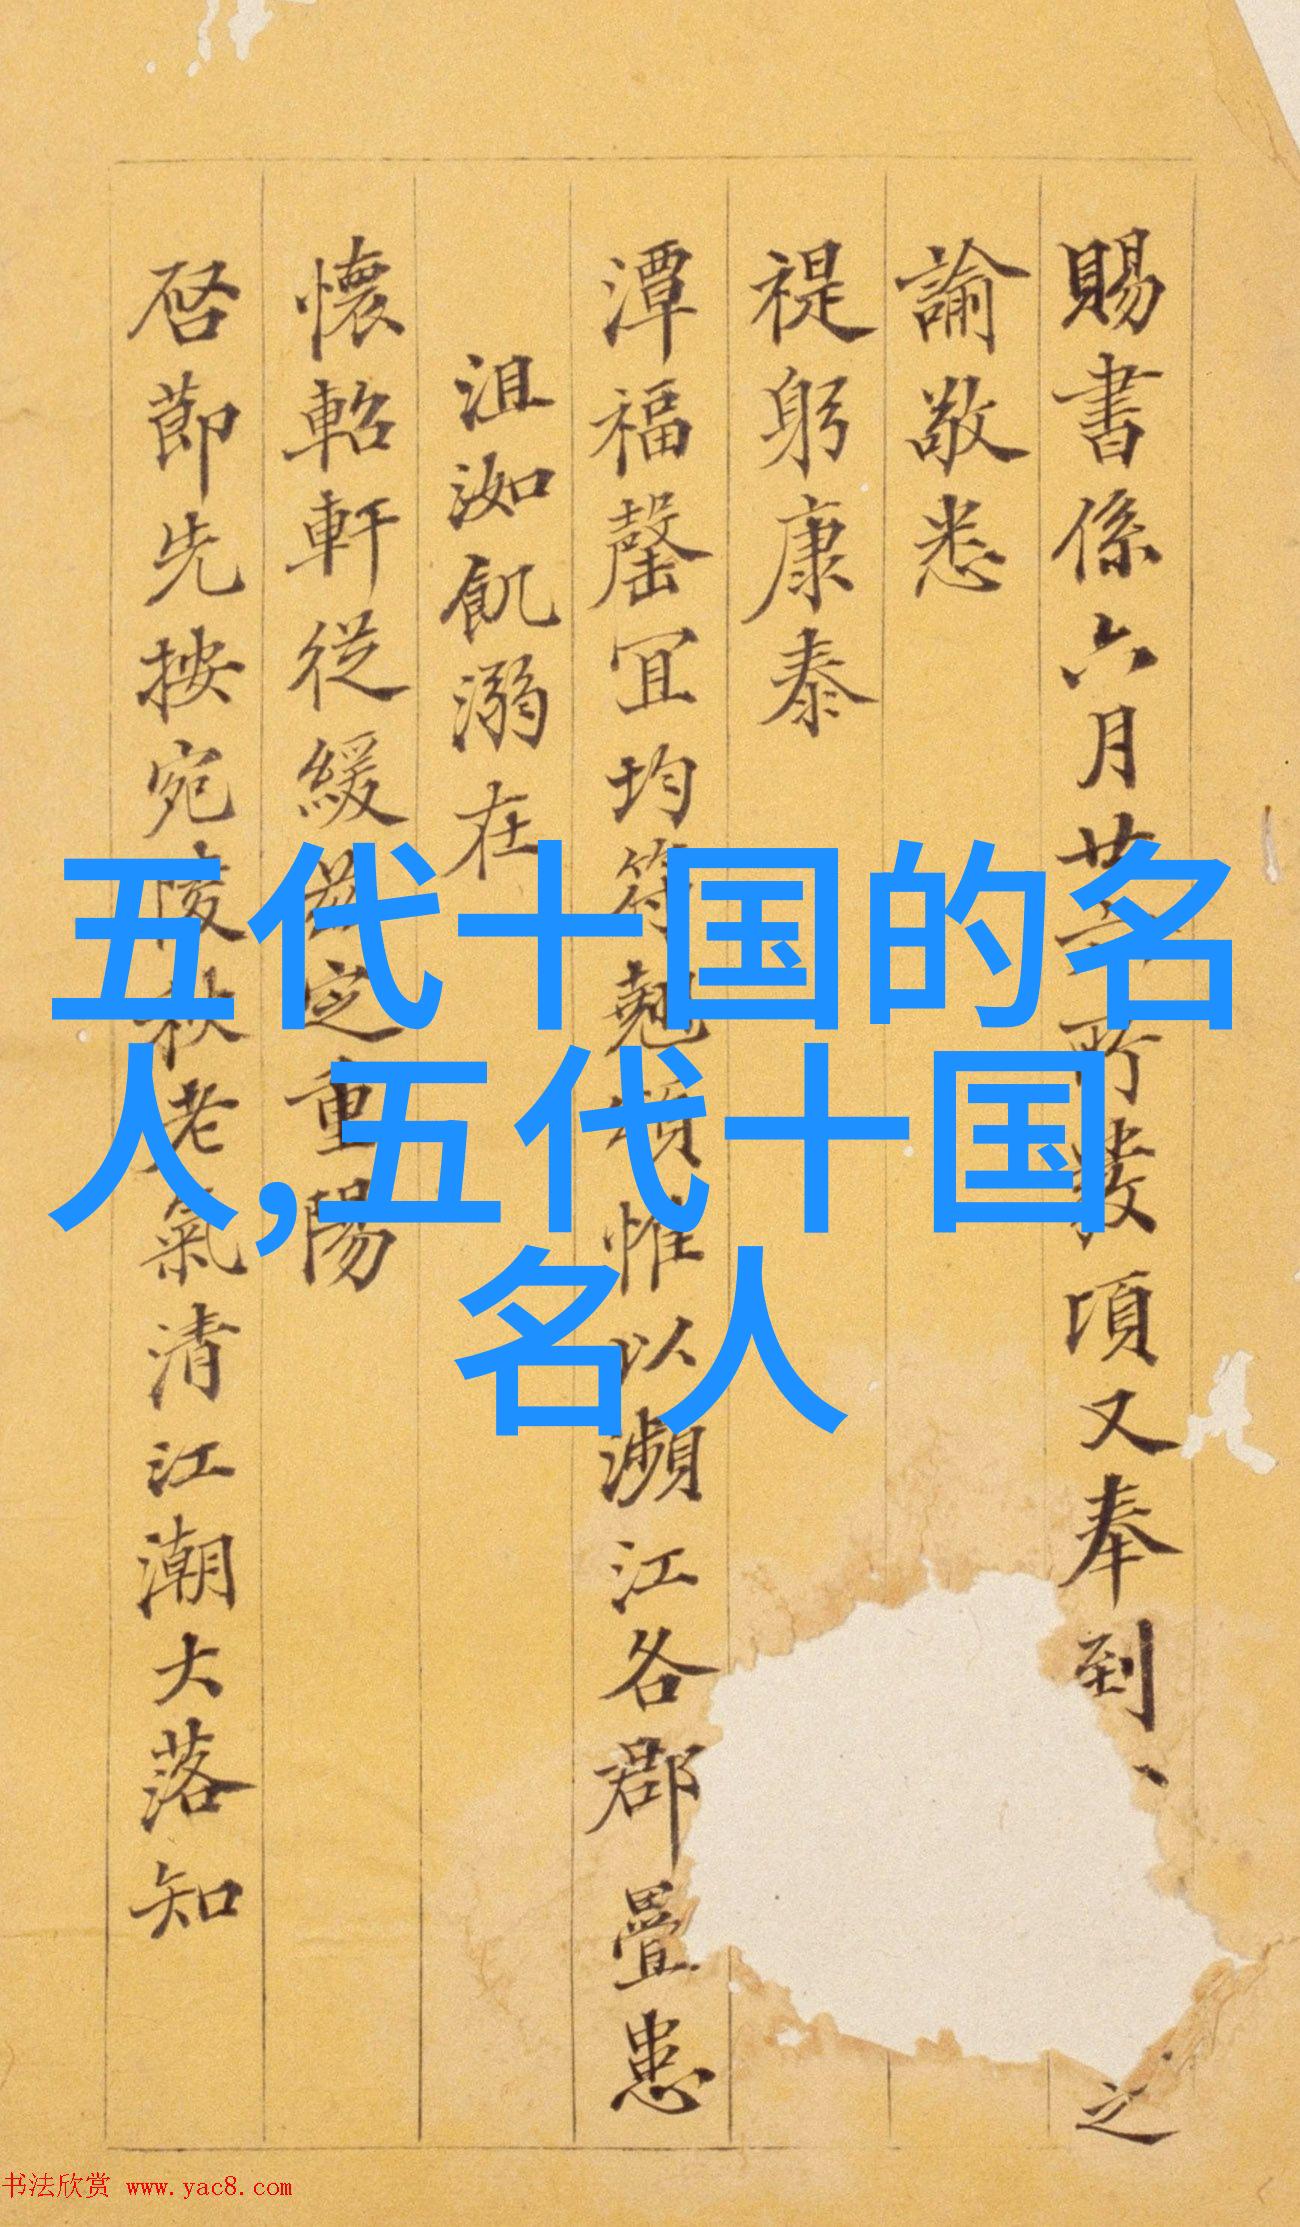 五代十国的名
人,五代十国
名人
賜書係六月廿 所發項又奉到、 之
諭敬悉
禔躬康泰
潭福罄宜均符 頌惟以瀕江各郡疊患
沮洳飢溺在
懷軺軒従緩 定重陽
啓節先按宛陵秋老氣清江潮大落知
书法欣赏 www.yac8.com